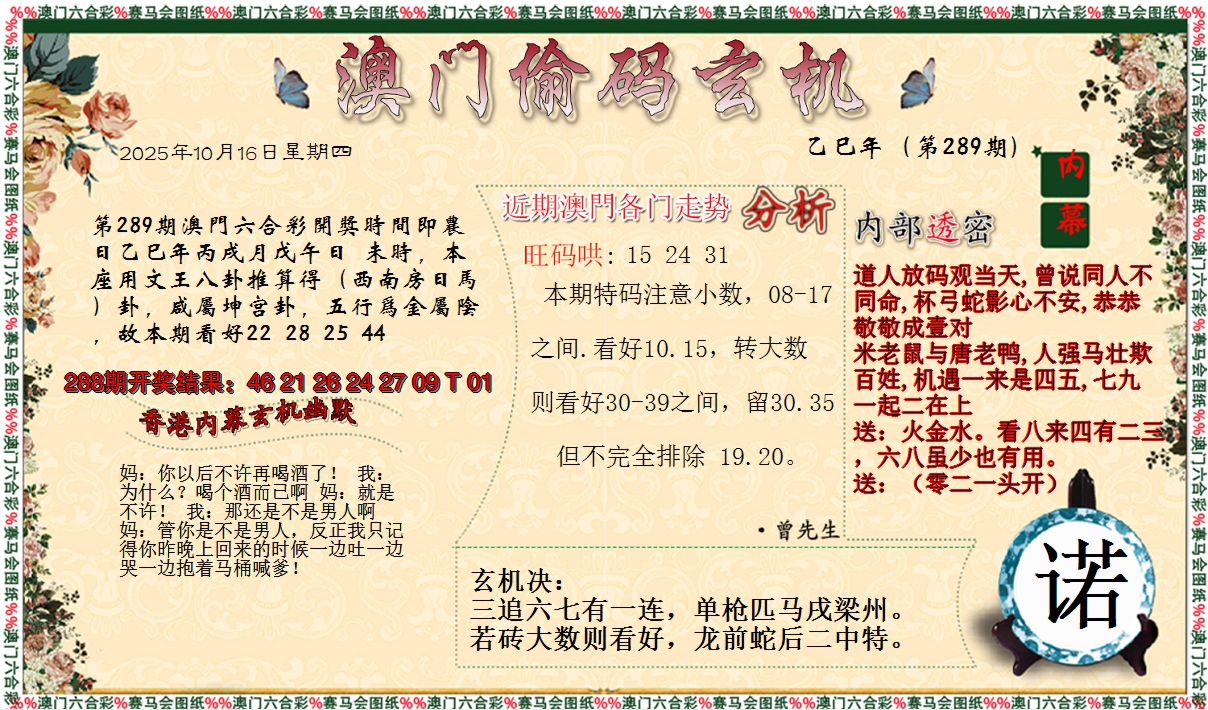 %%澳门六合彩%赛马会图纸%%澳门六合彩%赛马会图纸%%澳门六合彩%赛马会图纸%%澳门六合彩%赛马会图纸%%澳门六合彩%赛马会图纸%%澳门六合彩%赛马会图纸%%
澳门偷码玄机
2025年10月16日星期四
乙巳年（第289期）
内幕
第289期澳門六合彩開獎時間即農
日乙巳年丙戌月戊午日 未時，本
座用文王八卦推算得（西南房日馬
）卦，咸屬坤宫卦，五行爲金屬陰
，故本期看好22 28 25 44
288期开奖结果：46 21 26 24 27 09 T 01
香港内幕玄机幽默
妈：你以后不许再喝酒了！ 我：
为什么？喝个酒而已啊 妈：就是
不许！ 我：那还是不是男人啊
妈：管你是不是男人，反正我只记
得你昨晚上回来的时候一边吐一边
哭一边抱着马桶喊爹！
近期澳門各门走势 分析
旺码哄: 15 24 31
本期特码注意小数，08-17
之间.看好10.15，转大数
则看好30-39之间，留30.35
但不完全排除 19.20。
·曾先生
内部透密
道人放码观当天,曾说同人不
同命,杯弓蛇影心不安,恭恭
敬敬成壹对
米老鼠与唐老鸭,人强马壮欺
百姓,机遇一来是四五,七九
一起二在上
送：火金水。看八来四有二三
，六八虽少也有用。
送：（零二一头开）
玄机决：
三追六七有一连，单枪匹马戌梁州。
若砖大数则看好，龙前蛇后二中特。
诺
%%澳门六合彩%赛马会图纸%%澳门六合彩%赛马会图纸%%澳门六合彩%赛马会图纸%%澳门六合彩%赛马会图纸%%澳门六合彩%赛马会图纸%%澳门六合彩%赛马会图纸%%
%%澳门六合彩%赛马会图纸%%澳门六合彩%赛马会图纸%%澳门六合彩%赛马会图纸%%澳门六合彩
%%澳门六合彩%赛马会图纸%%澳门六合彩%赛马会图纸%%澳门六合彩%赛马会图纸%%澳门六合彩